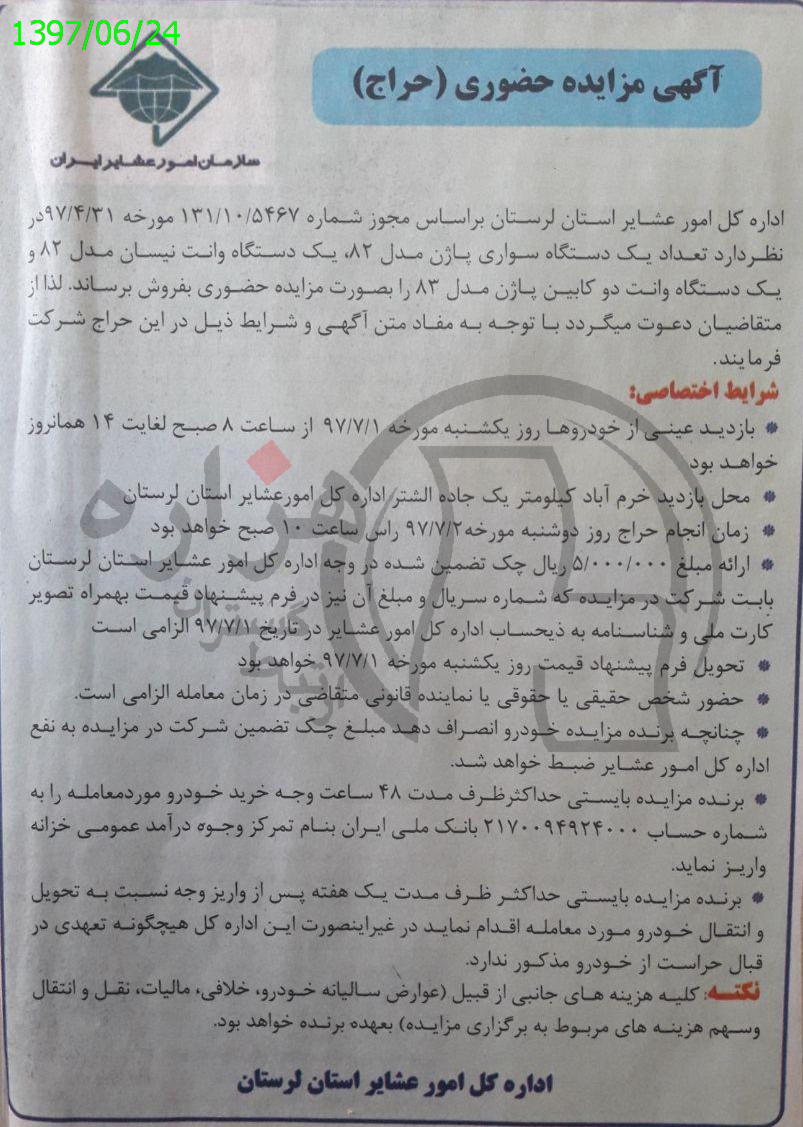 1397/06/24
سازمان امور عشایر ایران
آگهی مزایده حضوری (حراج)
اداره کل امور عشایر استان لرستان براساس مجوز شماره ۱۳۱/۱۰/۵۴۶۷ مورخه ۹۷/۴/۳۱در
نظردارد تعداد یک دستگاه سواری پاژن مدل ۸۲، یک دستگاه وانت نیسان مدل ۸۲ و
یک دستگاه وانت دو کابین پاژن مدل ۸۳ را بصورت مزایده حضوری بفروش برساند. لذا از
متقاضیان دعوت میگردد با توجه به مفاد متن آگهی و شرایط ذیل در این حراج شرکت
فرمایند.
شرایط اختصاصی:
* بازدید عینی از خودروها روز یکشنبه مورخه ۹۷/۷/۱ از ساعت ۸ صبح لغایت ۱۴ همانروز
خواهد بود
* محل بازدید خرم آباد کیلومتر یک جاده الشتر اداره کل امورعشایر استان لرستان
* زمان انجام حراج روز دوشنبه مورخه۹۷/۷/۲ راس ساعت ۱۰ صبح خواهد بود
* ارائه مبلغ ۵/۰۰۰/۰۰۰ ریال چک تضمین شده در وجه اداره کل امور عشایر استان لرستان
بابت شرکت در مزایده که شماره سریال و مبلغ آن نیز در فرم پیشنهاد قیمت بهمراه تصویر
کارت ملی و شناسنامه به ذیحساب اداره کل امور عشایر در تاریخ ۹۷/۷/۱ الزامی است
* تحویل فرم پیشنهاد قیمت روز یکشنبه مورخه ۹۷/۷/۱ خواهد بود
* حضور شخص حقیقی یا حقوقی یا نماینده قانونی متقاضی در زمان معامله الزامی است.
* چنانچه برنده مزایده خودرو انصراف دهد مبلغ چک تضمین شرکت در مزایده به نفع
اداره کل امور عشایر ضبط خواهد شد.
* برنده مزایده بایستی حداکثرظرف مدت ۴۸ ساعت وجه خرید خودرو موردمعامله را به
شماره حساب ۲۱۷۰۰۹۴۹۲۴۰۰۰ بانک ملی ایران بنام تمرکز وجوه درآمد عمومی خزانه
واریز نماید.
* برنده مزایده بایستی حداکثر ظرف مدت یک هفته پس از واریز وجه نسبت به تحویل
و انتقال خودرو مورد معامله اقدام نماید در غیراینصورت این اداره کل هیچگونه تعهدی در
قبال حراست از خودرو مذکور ندارد.
نکته: کلیه هزینه های جانبی از قبیل (عوارض سالیانه خودرو، خلافی، مالیات، نقل و انتقال
وسهم هزینه های مربوط به برگزاری مزایده) بعهده برنده خواهد بود.
اداره کل امور عشایر استان لرستان
هزاره